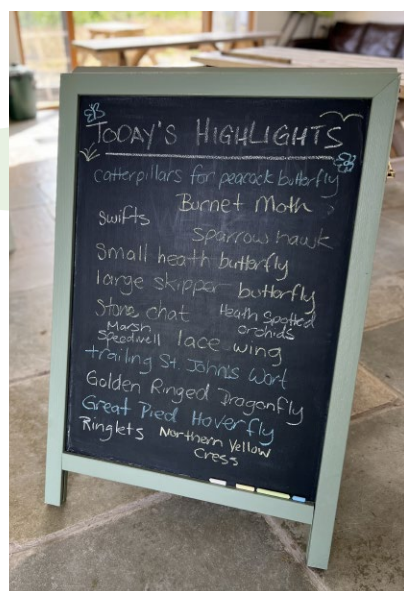 TODAY'S HIGHLIGHTS
Catterpillars for peacock butterfly
Burnet Moth
Swifts
sparrow hawk
Small heath butterfly
large skipper butterfly
Stone chat
Heath Spotted
orchids
Marsh
Speedwell
lace wing
trailing St. John's Wort
Golden Ringed Dragonfly
Great Pied Hoverfly
Ringlets
Northern Yellow
Cress